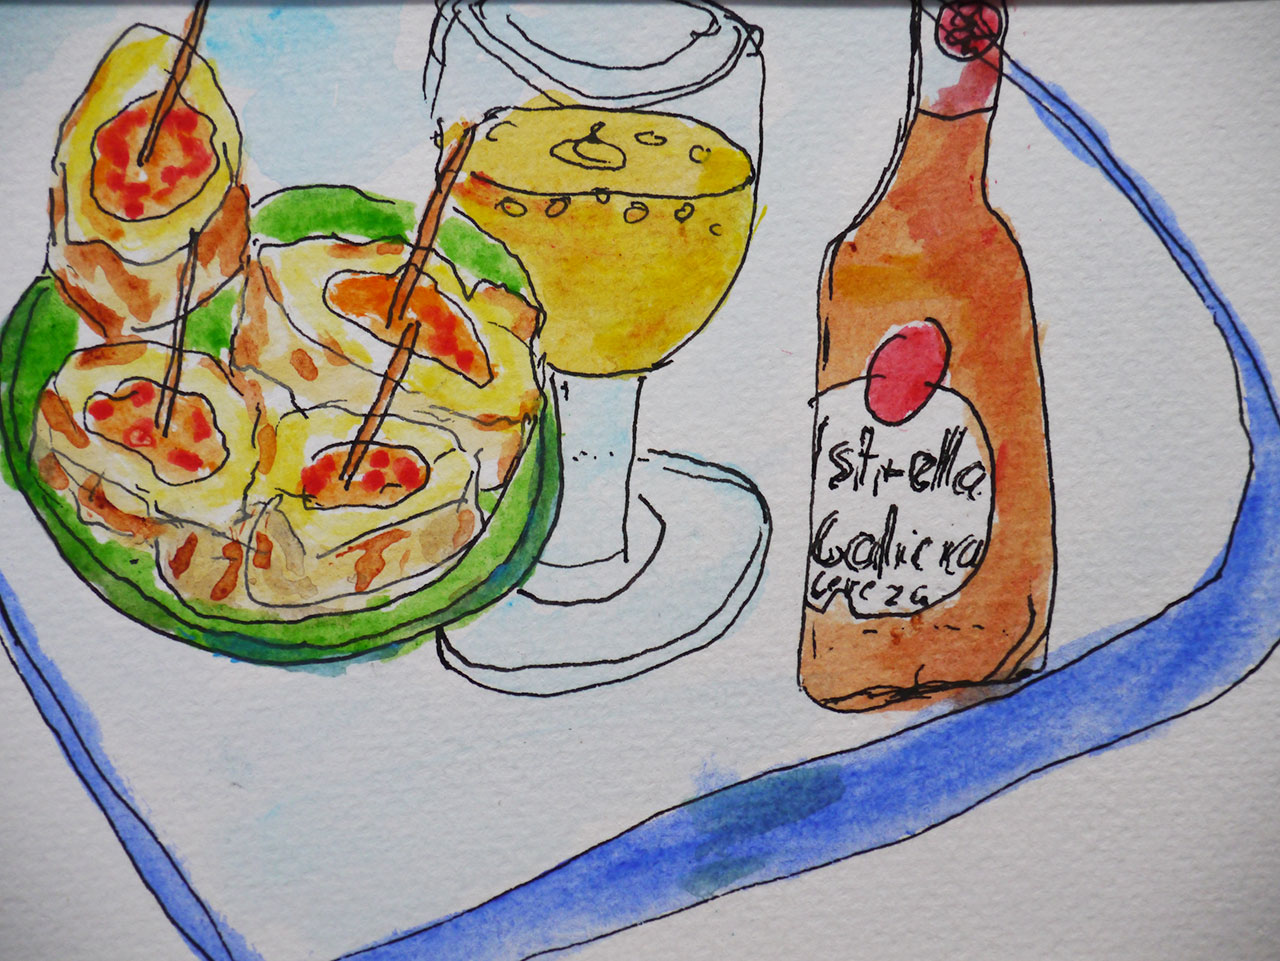 Strella
Galicia
cereza